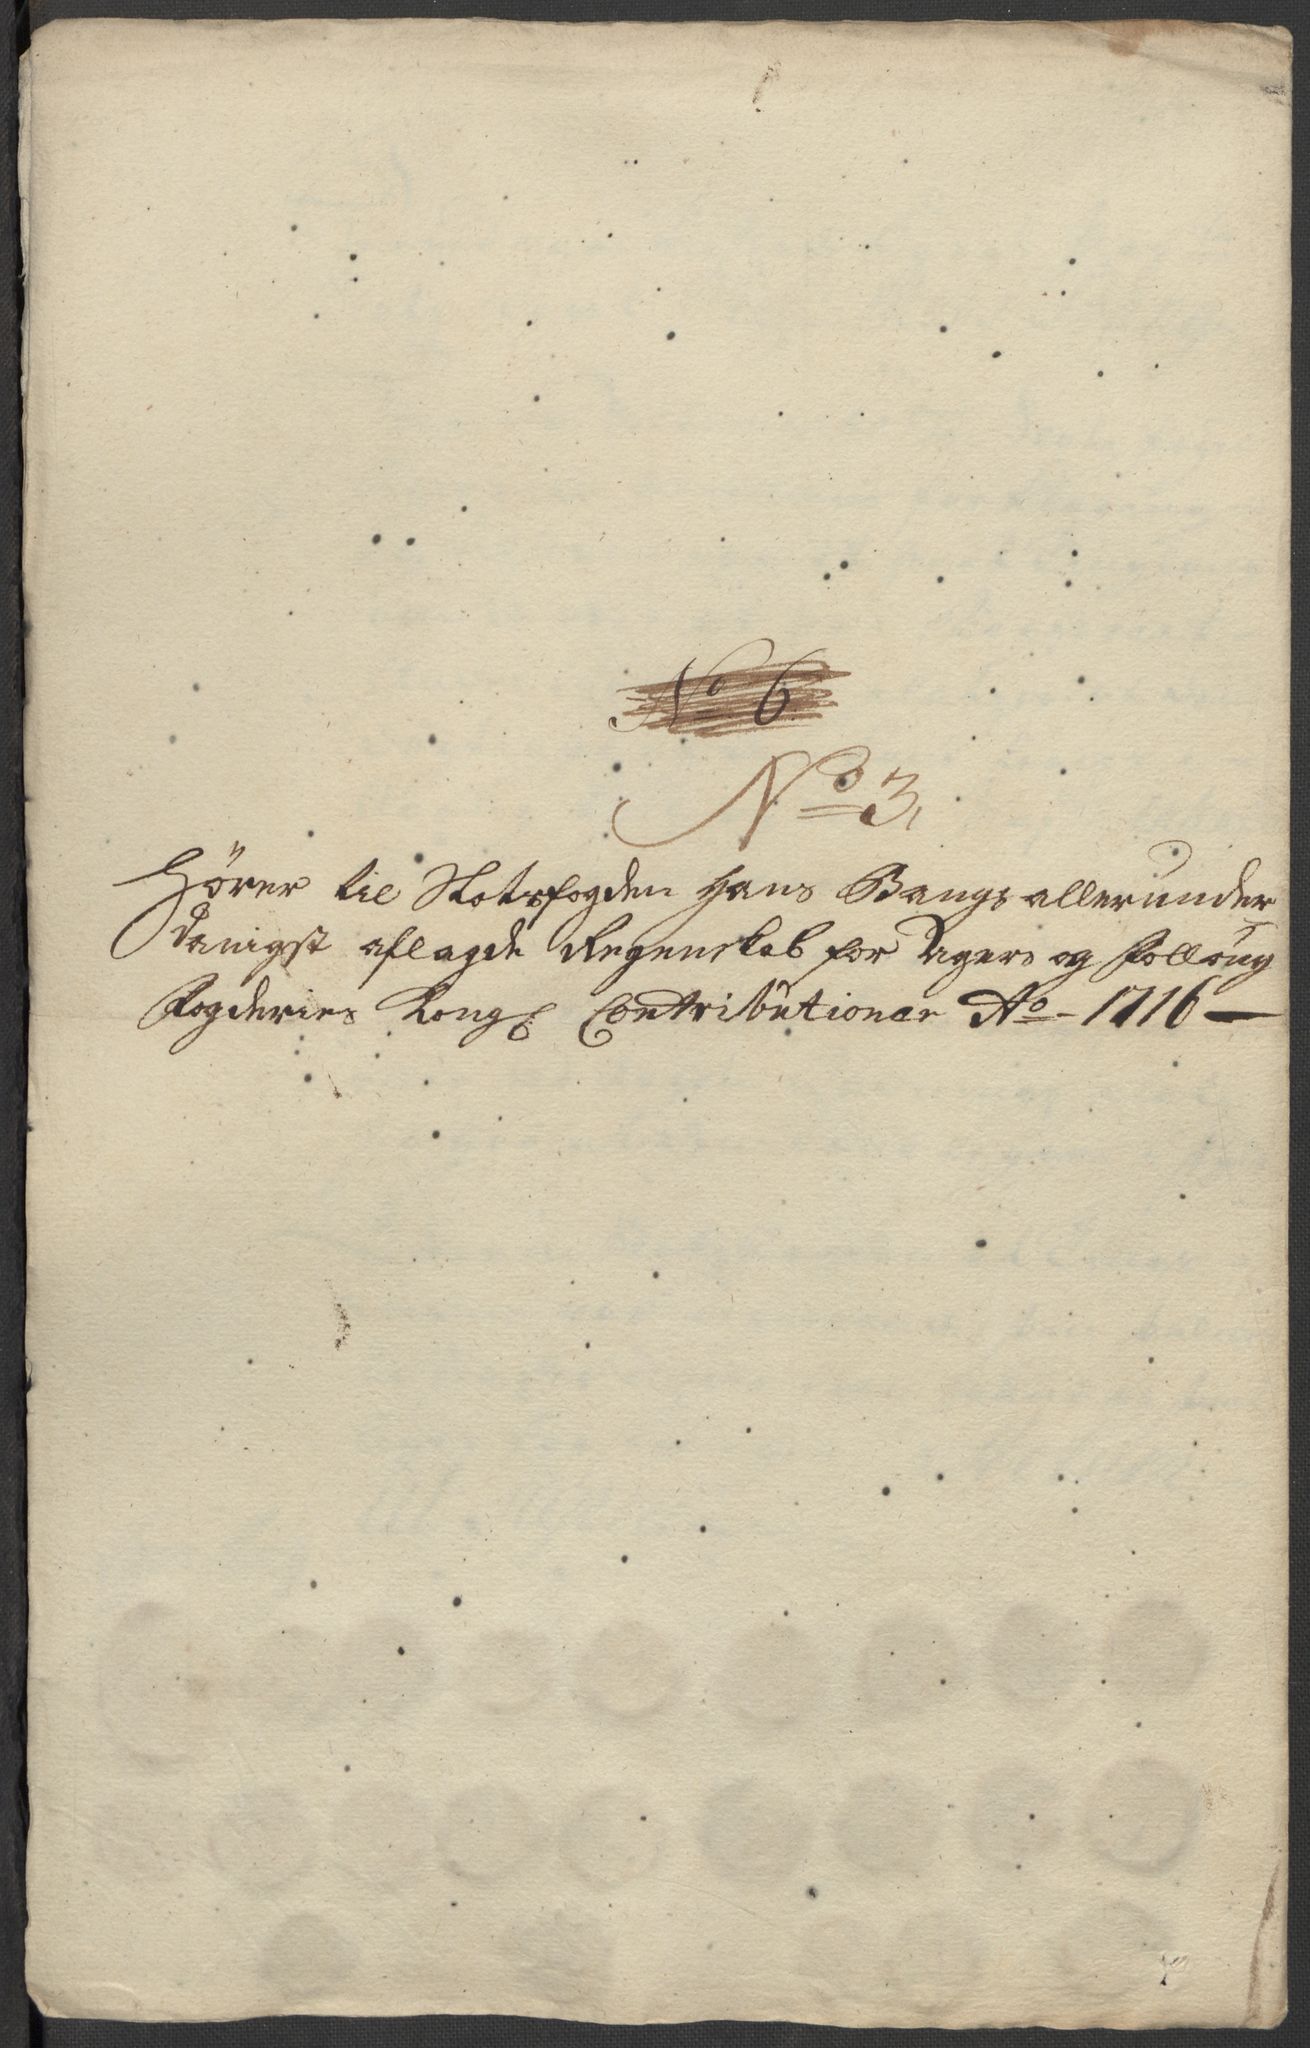 No 6
No 3,
Hörer til Slotsfogden Hans Bangs allerunder
danigst aflagde Regenskab for Agers og Follöug
Fogderies Kongl Contributioner Ao - 1716 —